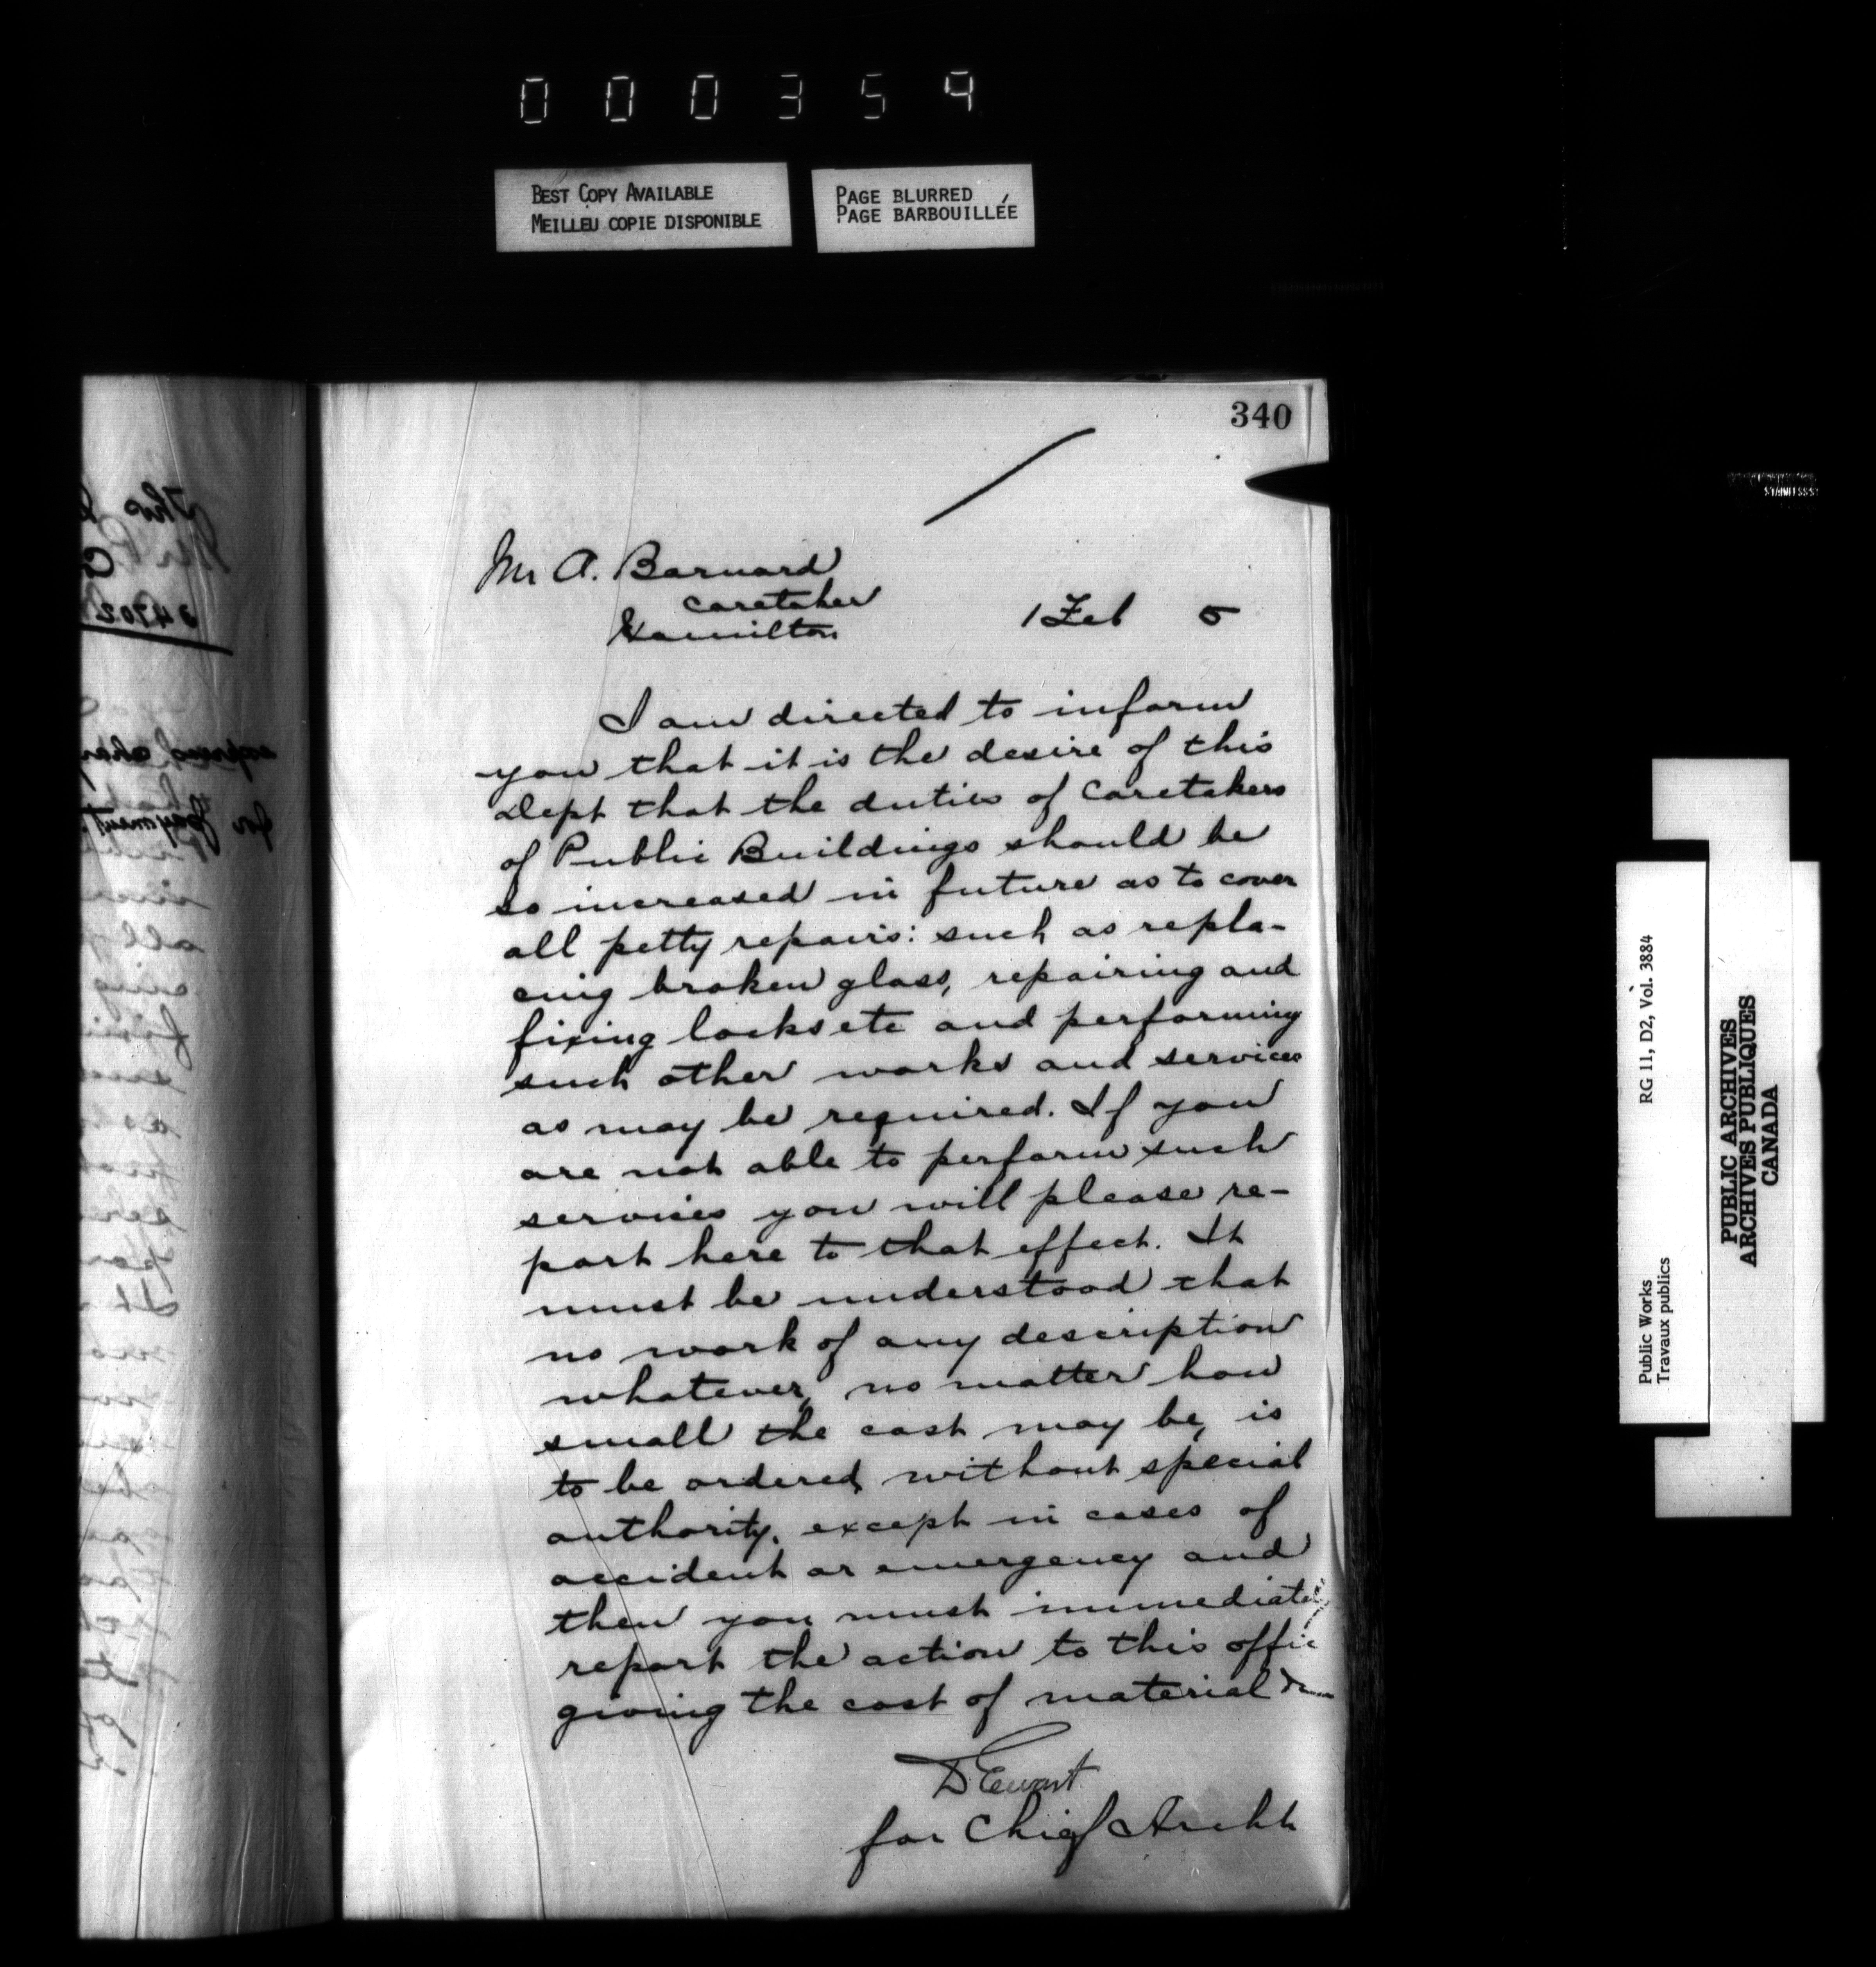 000359
BEST COPY AVAILABLE
MEILLEU COPIE DISPONIBLE
PAGE BLURRED
PAGE BARBOUILLÉE
340
Mr A. Barnard
Caretaker
Hamilton
1 Feb 5
I am directed to inform
you that it is the desire of this
Dept that the duties of Caretakers
of Public Buildings should be
so increased in future as to cover
all petty repairs: such as repla-
cing broken glass, repairing and
fixing locks etc and performing
such other works and services
as may be required. If you
are not able to perform such
services you will please re-
port here to that effect. It
must be understood that
no work of any description
whatever, no matter how
small the cost may be, is
to be ordered without special
authority, except in cases of
accident or emergency and
then you must immediately
report the action to this offic
giving the cost of material &c
D Ewart
for Chief Archt
RG 11, D2, Vol. 3884
Public Works
Travaux publics
PUBLIC ARCHIVES
ARCHIVES PUBLIQUES
CANADA
STAINLESS